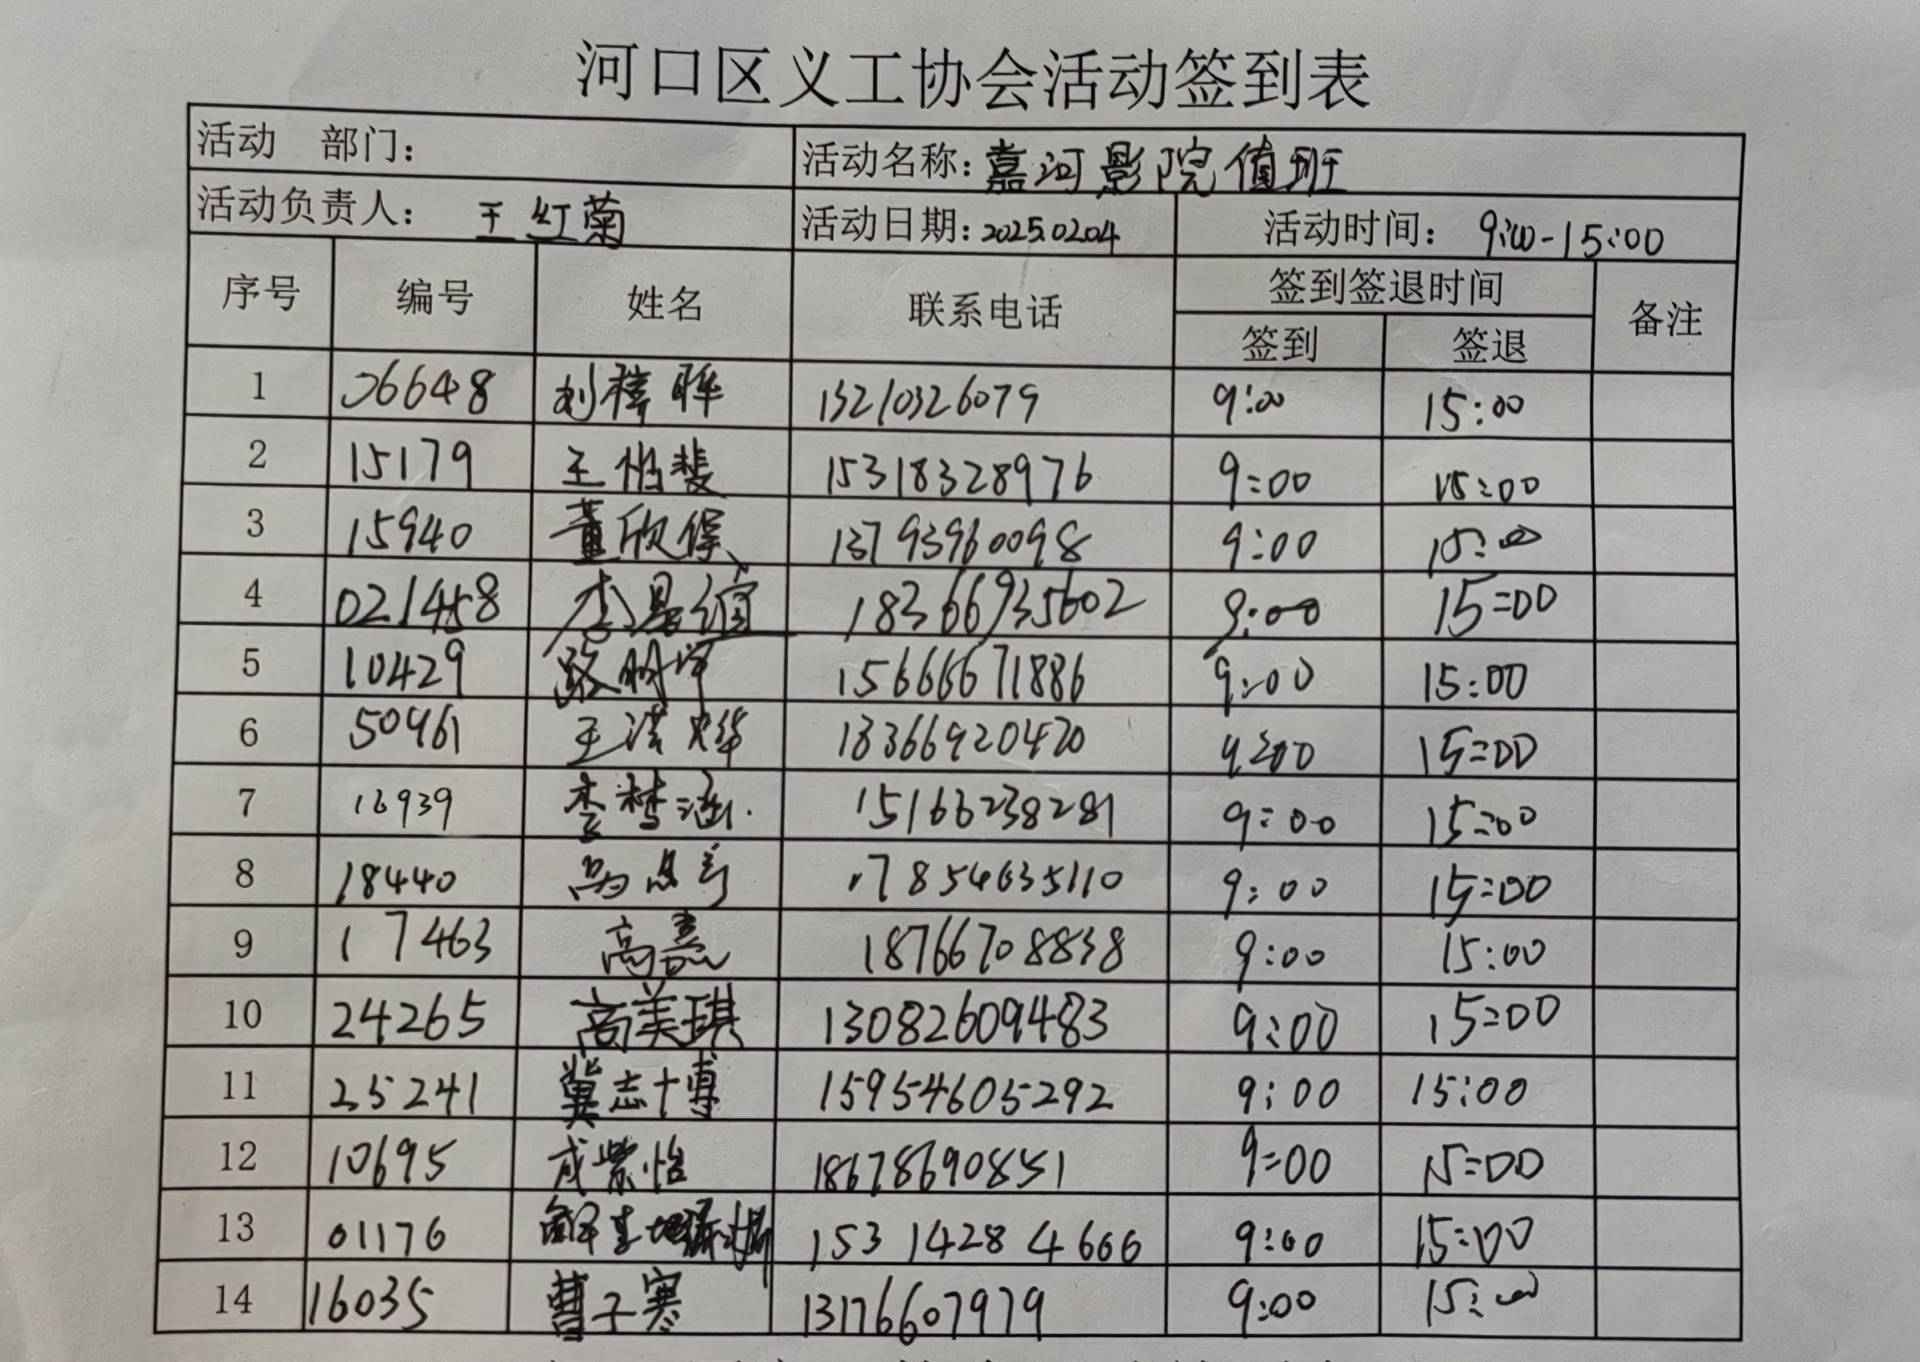 河口区义工协会活动签到表
活动 部门： 活动名称：嘉河影院值班
活动负责人： 王红菊 活动日期：2025.02.04 活动时间： 9:00-15:00
序号 编号 姓名 联系电话 签到签退时间 备注
签到 签退
1 06648 刘梓晔 13210326079 9:00 15:00
2 15179 王怡斐 15318328976 9:00 15:00
3 15940 董欣 13793960098 9:00 15:00
4 李 18366935602 9:00 15:00
5 10429 路明 15666671886 9:00 15:00
6 50961 王浩烨 18366920470 9:00 15:00
7 16939 李梦涵 15166238281 9:00 15:00
8 18440 17854635110 9:00 15:00
9 17463 高熹 18766708838 9:00 15:00
10 24265 高美琪 13082609483 9:00 15:00
11 25241 冀志博 15954605292 9:00 15:00
12 10695 成紫怡 18678690851 9:00 15:00
13 01176 15314284666 9:00 15:00
14 16035 曹子寒 13176607979 9:00 15:00